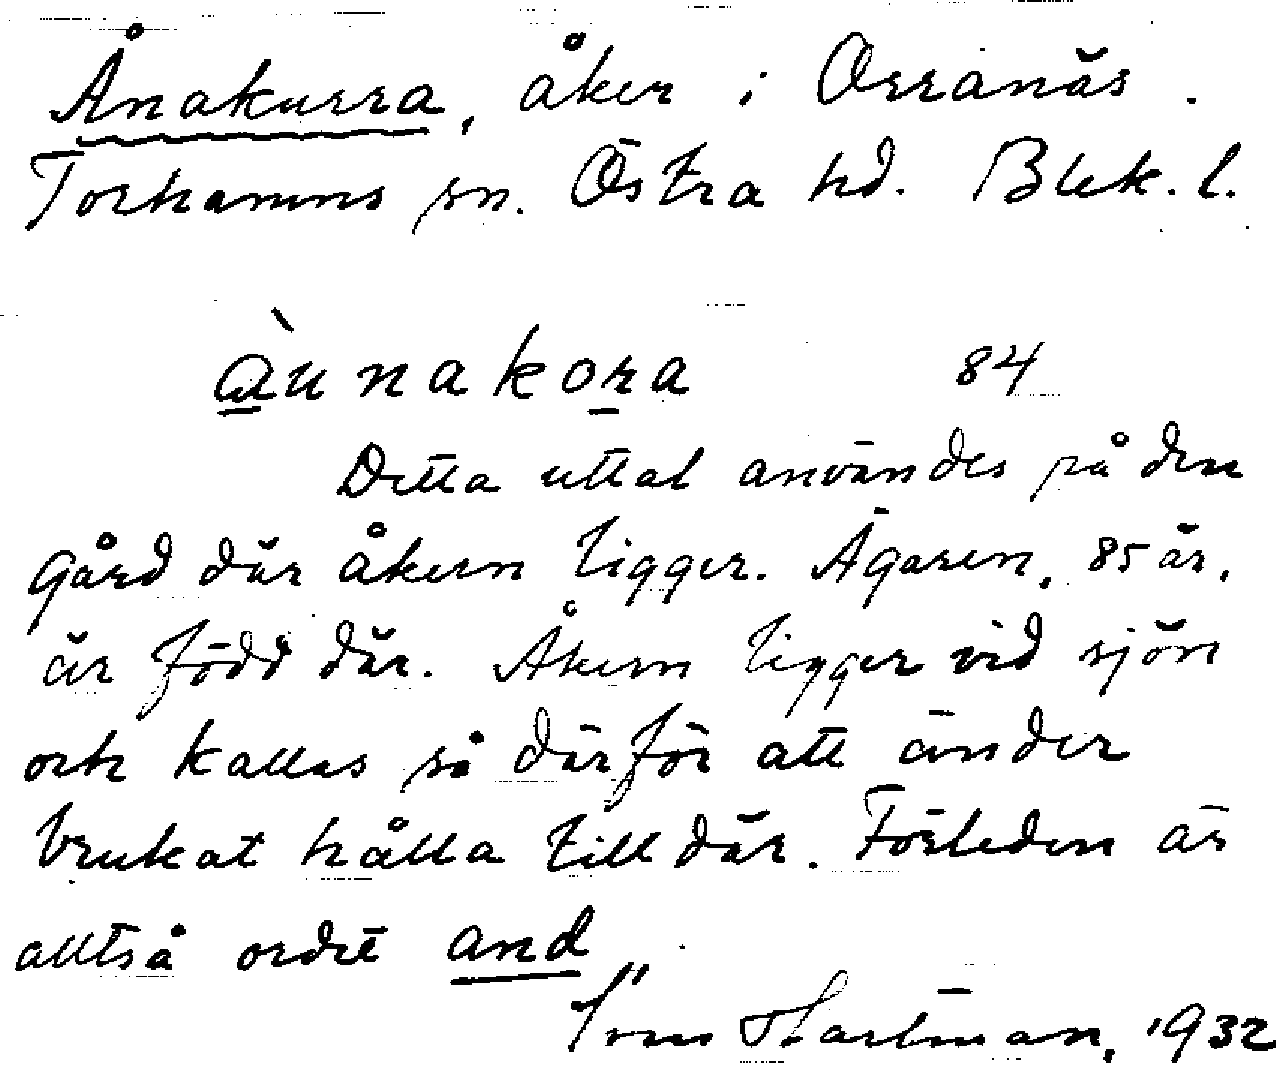 Ånakurra, åker i Orranäs.
Torhamns sn. Östra hd. Blek. l.
àunakora 84
Detta uttal användes på den
gård där åkern ligger. Ägaren, 85 år,
är född där. Åkern ligger vid sjön
och kallas så därför att änder
brukat hålla till där. Förleden är
alltså ordet and
Hartman, 1932